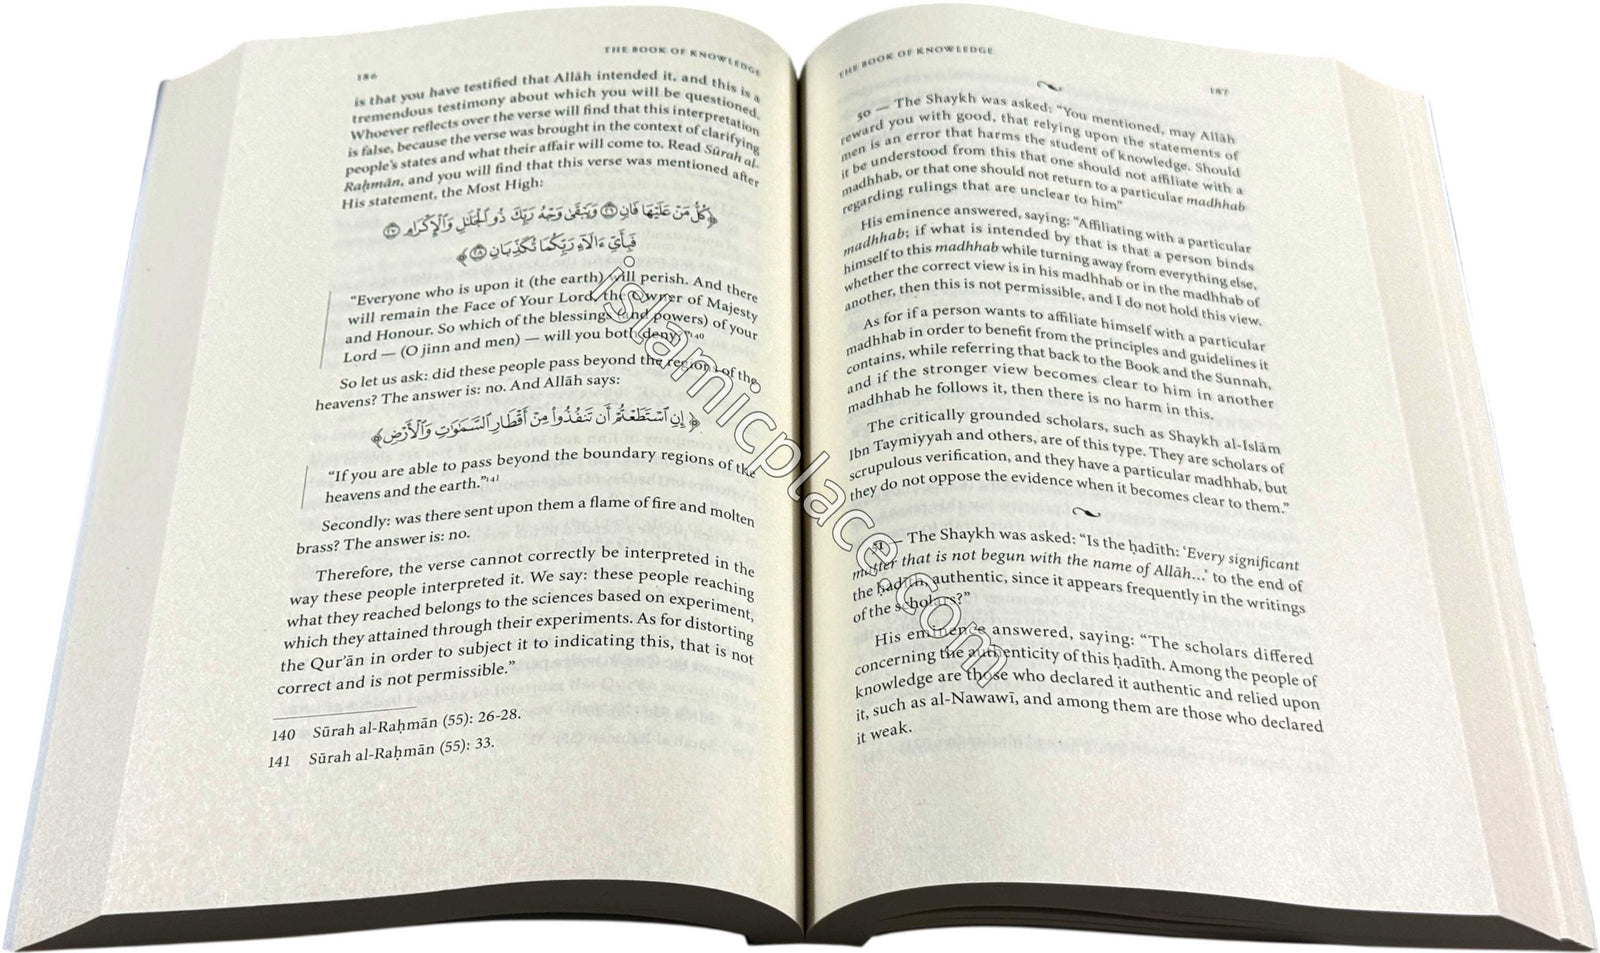 186
THE BOOK OF KNOWLEDGE
is that you have testified that Allāh intended it, and this is a
tremendous testimony about which you will be questioned.
Whoever reflects over the verse will find that this interpretation
is false, because the verse was brought in the context of clarifying
people's states and what their affair will come to. Read Sūrah al-
Raḥmān, and you will find that this verse was mentioned after
His statement, the Most High:
﴿كُلُّ مَنْ عَلَيْهَا فَانٍ ۝٢٦ وَيَبْقَىٰ وَجْهُ رَبِّكَ ذُو ٱلْجَلَٰلِ وَٱلْإِكْرَامِ ۝٢٧
فَبِأَيِّ ءَالَآءِ رَبِّكُمَا تُكَذِّبَانِ ۝٢٨﴾
“Everyone who is upon it (the earth) will perish. And there
will remain the Face of Your Lord, the Owner of Majesty
and Honour. So which of the blessings (and powers) of your
Lord — (O jinn and men) — will you both deny?”140
So let us ask: did these people pass beyond the regions of the
heavens? The answer is: no. And Allāh says:
﴿إِنِ ٱسْتَطَعْتُمْ أَن تَنفُذُوا۟ مِنْ أَقْطَارِ ٱلسَّمَٰوَٰتِ وَٱلْأَرْضِ﴾
“If you are able to pass beyond the boundary regions of the
heavens and the earth.”141
Secondly: was there sent upon them a flame of fire and molten
brass? The answer is: no.
Therefore, the verse cannot correctly be interpreted in the
way these people interpreted it. We say: these people reaching
what they reached belongs to the sciences based on experiment,
which they attained through their experiments. As for distorting
the Qur’ān in order to subject it to indicating this, that is not
correct and is not permissible.”
140 Sūrah al-Raḥmān (55): 26-28.
141 Sūrah al-Raḥmān (55): 33.
THE BOOK OF KNOWLEDGE
187
50 — The Shaykh was asked: “You mentioned, may Allāh
reward you with good, that relying upon the statements of
men is an error that harms the student of knowledge. Should
it be understood from this that one should not affiliate with a
madhhab, or that one should not return to a particular madhhab
regarding rulings that are unclear to him”
His eminence answered, saying: “Affiliating with a particular
madhhab; if what is intended by that is that a person binds
himself to this madhhab while turning away from everything else,
whether the correct view is in his madhhab or in the madhhab of
another, then this is not permissible, and I do not hold this view.
As for if a person wants to affiliate himself with a particular
madhhab in order to benefit from the principles and guidelines it
contains, while referring that back to the Book and the Sunnah,
and if the stronger view becomes clear to him in another
madhhab he follows it, then there is no harm in this.
The critically grounded scholars, such as Shaykh al-Islām
Ibn Taymiyyah and others, are of this type. They are scholars of
scrupulous verification, and they have a particular madhhab, but
they do not oppose the evidence when it becomes clear to them.”
51 — The Shaykh was asked: “Is the ḥadīth: ‘Every significant
matter that is not begun with the name of Allāh...’ to the end of
the ḥadīth, authentic, since it appears frequently in the writings
of the scholars?”
His eminence answered, saying: “The scholars differed
concerning the authenticity of this ḥadīth. Among the people of
knowledge are those who declared it authentic and relied upon
it, such as al-Nawawī, and among them are those who declared
it weak.
islamicplace.com